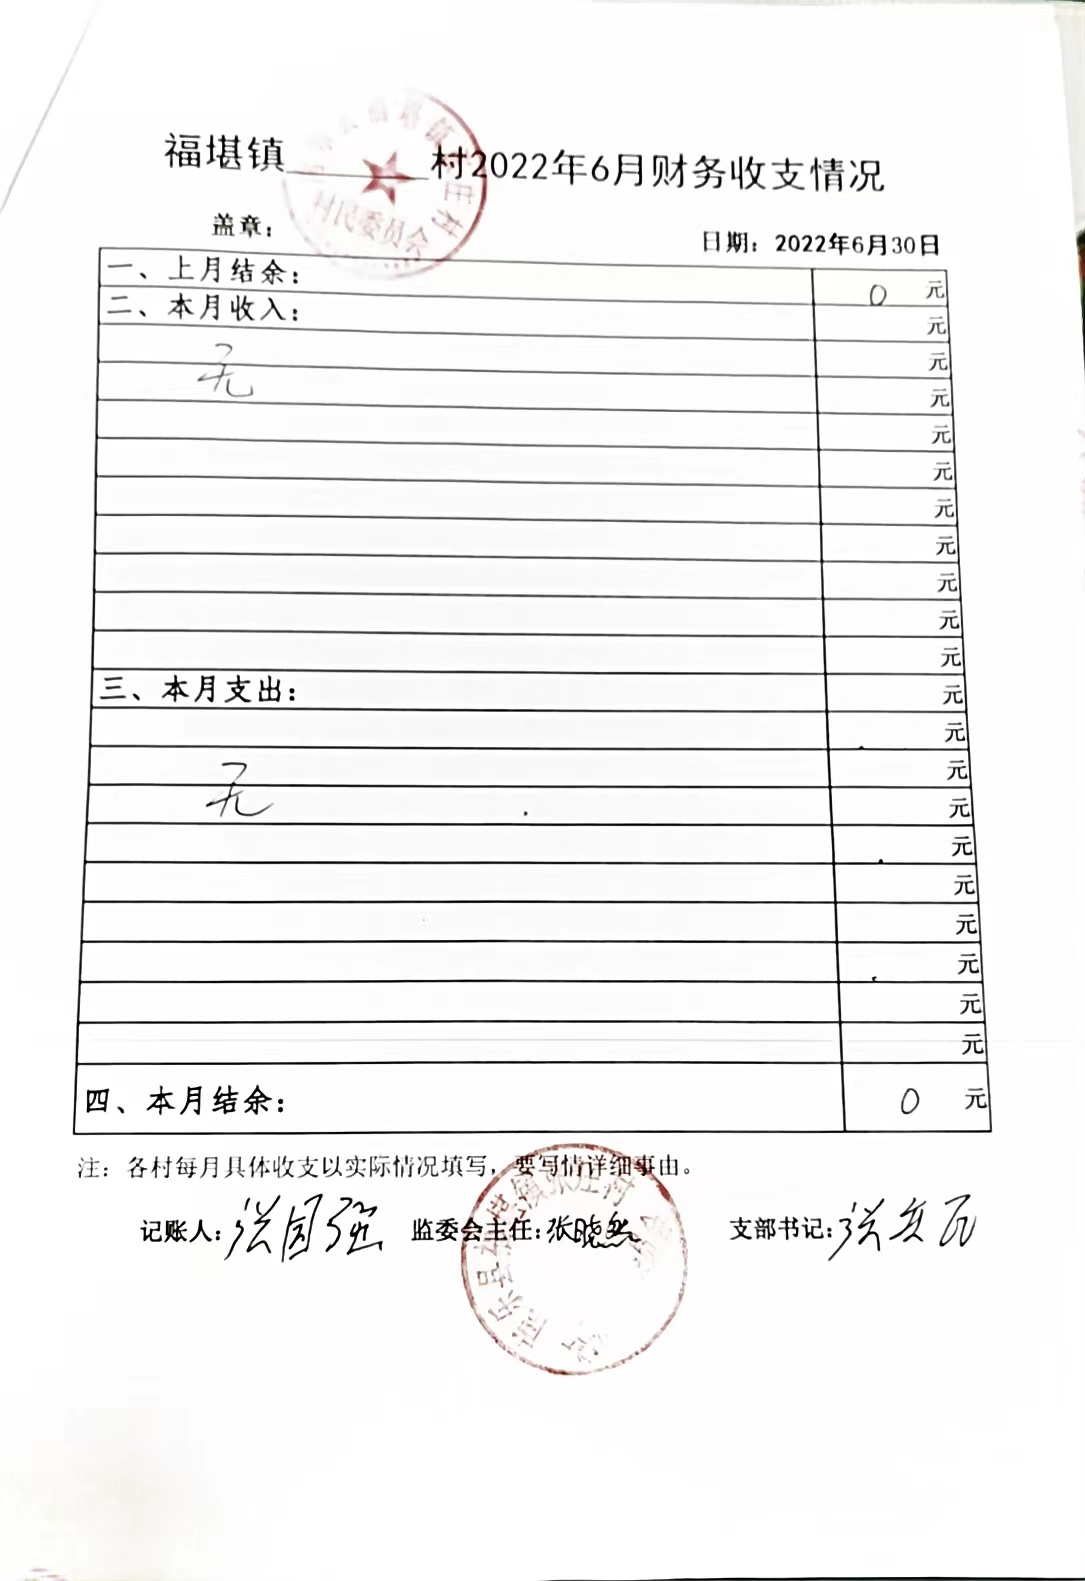 福堪镇 村2022年6月财务收支情况
村民委员会
盖章： 日期：2022年6月30日
一、上月结余： 0 元
二、本月收入： 元
元
无 元
元
元
元
元
元
元
元
三、本月支出： 元
元
元
无 元
元
元
元
元
元
元
四、本月结余： 0 元
注：各村每月具体收支以实际情况填写，要写情详细事由。
记账人：张国强 监委会主任：张晓然 支部书记：张